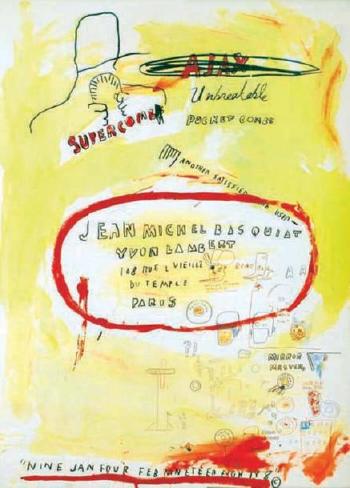 AJAX
Unbreakable
POCKET COMBS
SUPERCOMB
ANOTHER SATISFIED
USER
JEAN MICHEL BASQUIAT
YVON LAMBERT
108 RUE VIEILLE
DU TEMPLE
PARIS
MIRROR
MASTER
"NINE JAN FOUR FEB NINETEEN EIGHTY 8" ©